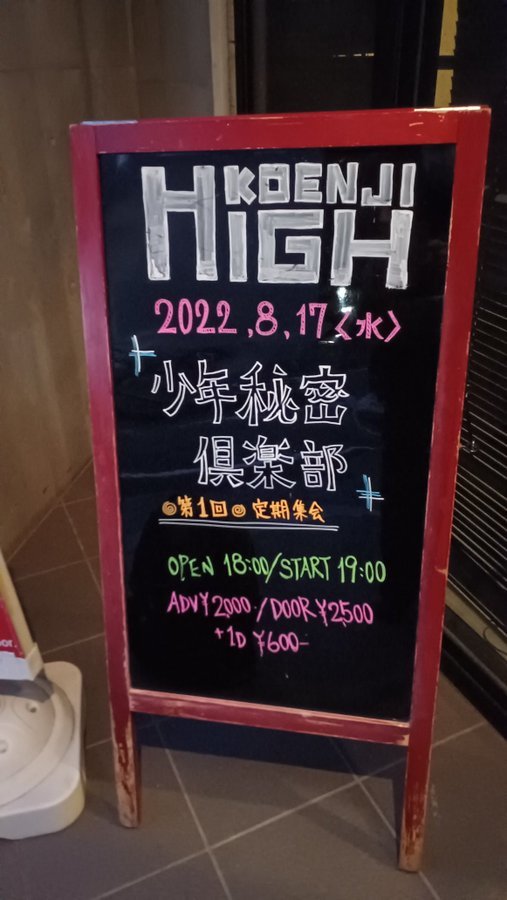 KOENJI
HIGH
2022.8.17〈水〉
少年秘密
倶楽部
第1回 定期集会
OPEN 18:00/START 19:00
ADV¥2,000-/DOOR¥2,500
+1D ¥600-